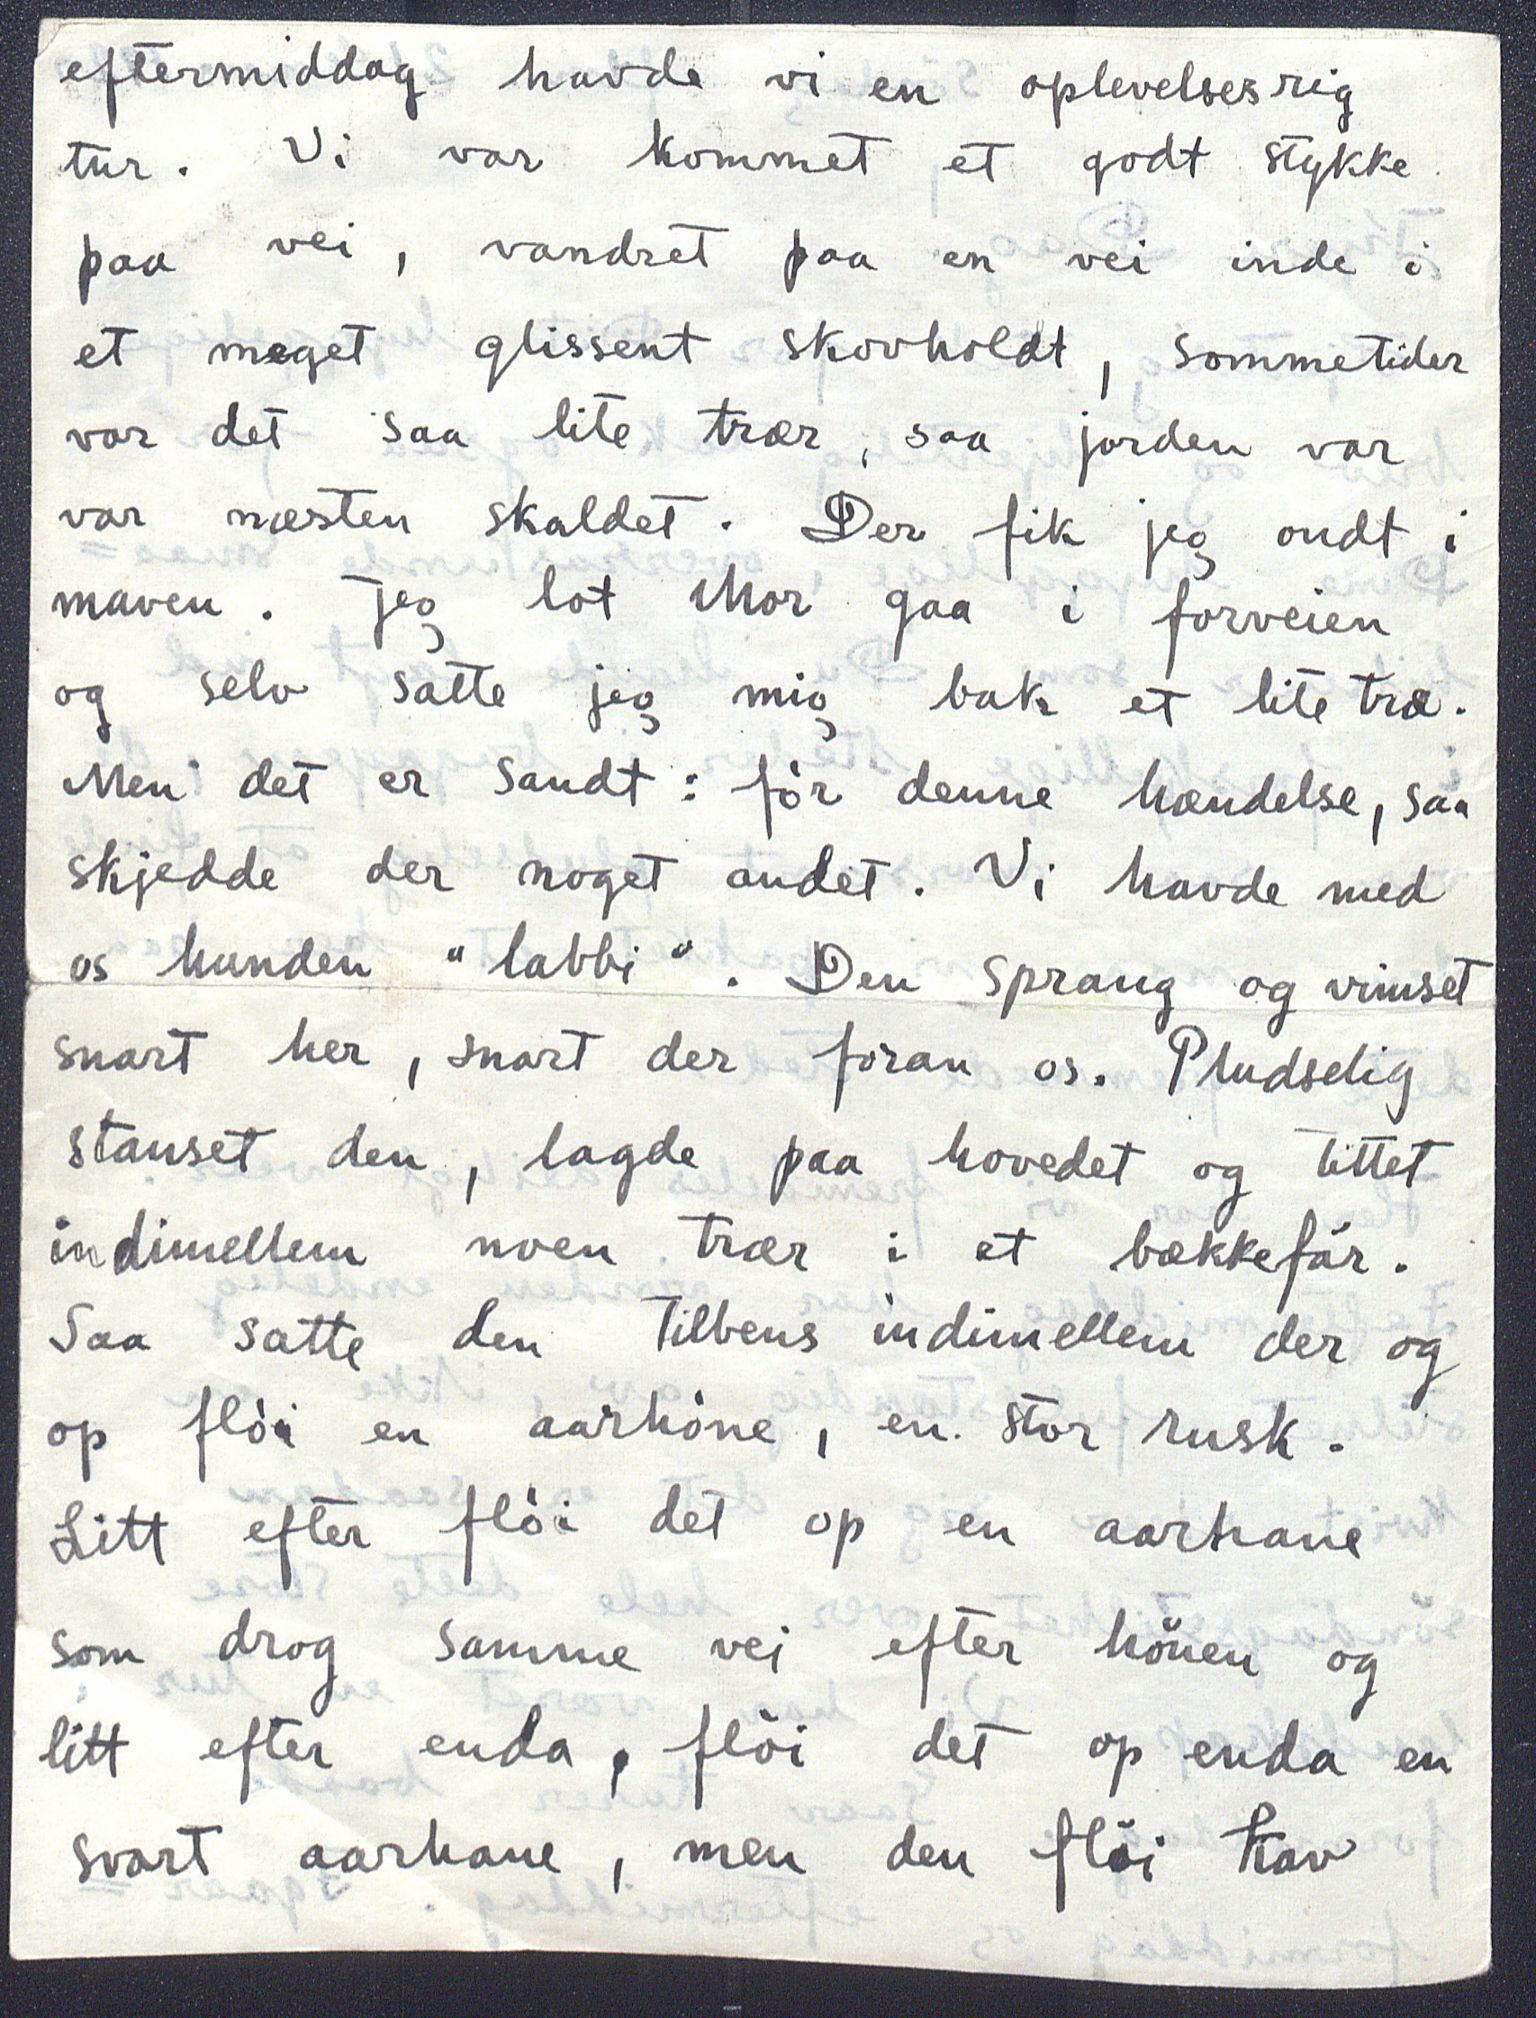 eftermiddag havde vi en oplevelsesrig
tur. Vi var kommet et godt stykke
paa vei, vandret paa en vei inde i
et meget glissent skovholdt, sommetider
var det saa lite trær, saa jorden var
var næsten skaldet. Der fik jeg ondt i
maven. Jeg lot Mor gaa i forveien
og selv satte jeg mig bak et lite træ.
Men det er sandt: før denne hændelse, saa
skjedde der noget andet. Vi havde med
os hunden "labbi". Den sprang og vimset
snart her, snart der foran os. Pludselig
stanset den, lagde paa hovedet og tittet
indimellem noen trær i et bækkefar.
Saa satte den tilbens indimellem der og
op fløi en aarhøne, en stor rusk.
Litt efter fløi det op en aarhane
som drog samme vei efter hönen og
litt efter enda, fløi det op enda en
svart aarhane, men den fløi kav